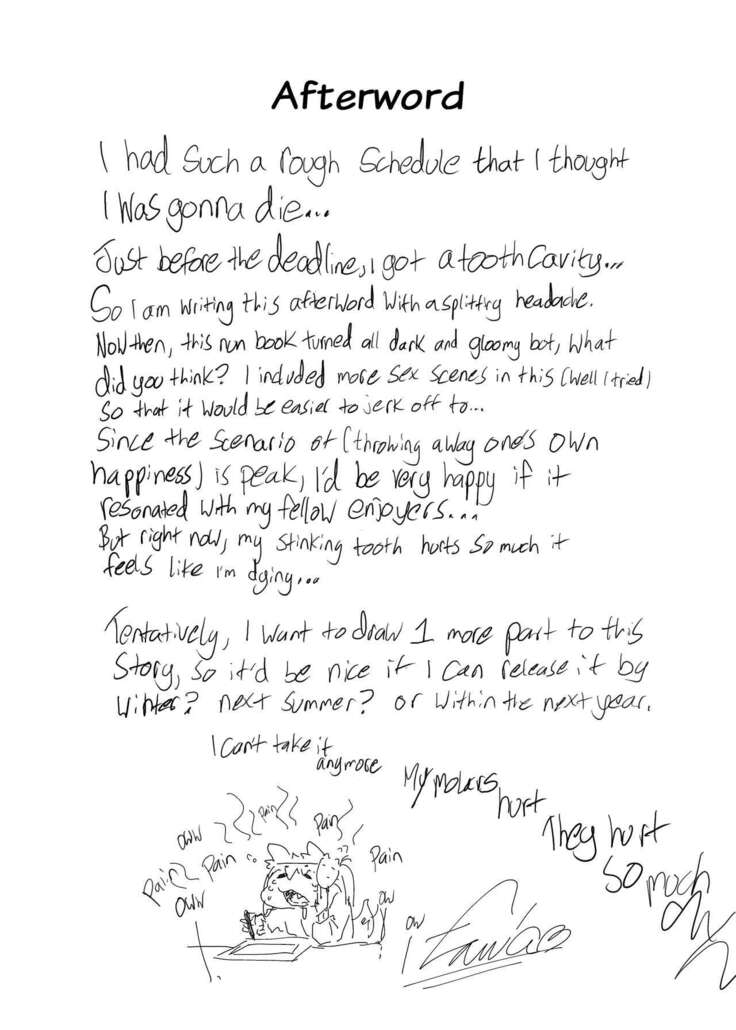 Afterword
I had Such a rough Schedule that I thought
I was gonna die...
Just before the deadline, I got a tooth Cavity...
So I am writing this afterword with a splittry headache.
Now then, this nun book turned all dark and gloomy bot, What
did you think? I included more sex scenes in this (Well I tried)
so that it would be easier to jerk off to...
Since the scenario of (throwing away one's own
happiness) is peak, I'd be very happy if it
resonated with my fellow enjoyers...
But right now, my stinking tooth hurts so much it
feels like I'm dying...
Tentatively, I want to draw 1 more part to this
Story, so it'd be nice if I can release it by
winter? next summer? or within the next year.
I can't take it
anymore
My molars
hurt
They hurt
so moch
OW
Pain
Pain
oww
Pain
Pain
Pain
oww
ow
ow